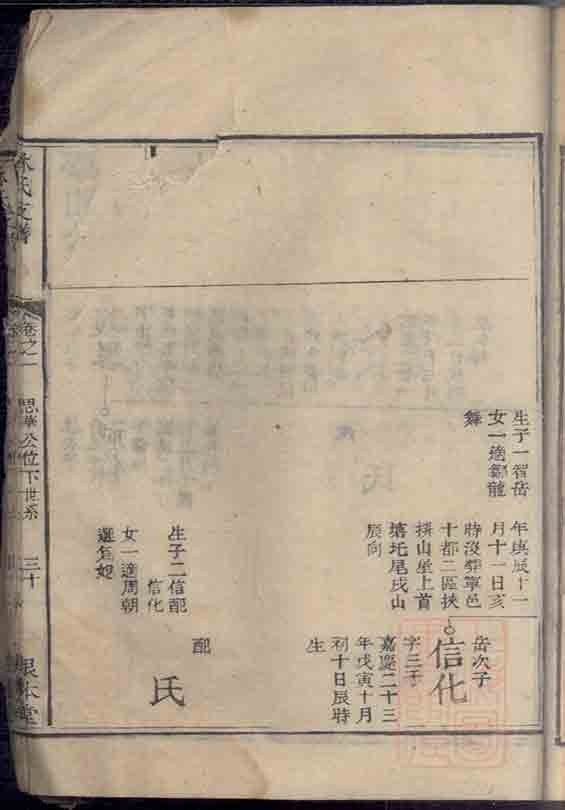 生子一智岳
女一適鄒龍
舞
年庚辰十一
月十一日亥
時沒葬寧邑
十都二區挾
横山屋上首
塘圫尾戌山
辰向
生子二信配
信化
女一適周朝
選為妃
岳次子
信化
字三子
嘉慶二十三
年戊寅十月
初十日辰時
生
配
氏
氏支譜
卷之一
思華公位下世系
三十
根本堂